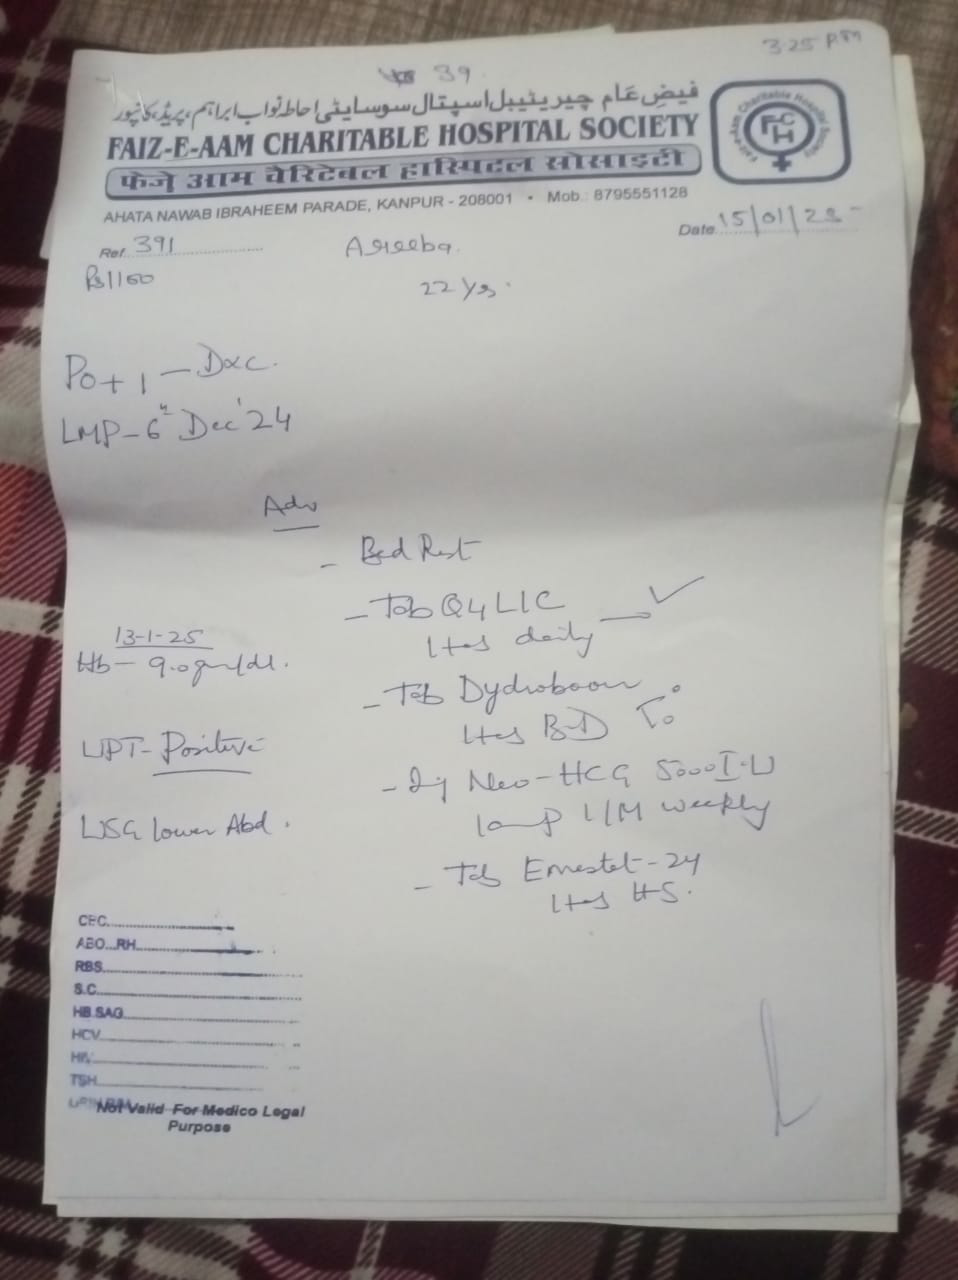 3:25 PM
39
فیضِ عَام چیریٹیبل اسپتال سوسایٹی احاطہ نواب ابراہیم، پریڈ، کانپور
FAIZ-E-AAM CHARITABLE HOSPITAL SOCIETY
फेजे आम चैरिटेबल हास्पिटल सोसाइटी
AHATA NAWAB IBRAHEEM PARADE, KANPUR - 208001 • Mob.: 8795551128
Faiz-e-Aam Charitable Hospital Society
Ref. 391
Areeba.
Date. 15/01/25
Rs 1160
22 Ys.
P0+1 - D&C.
LMP - 6th Dec'24
Adv
- Bed Rest
- Tab Q4LIC
1 tas daily
13-1-25
Hb - 9.0 gm/dl.
- Tab Dydroboon
1 tas BD
UPT - Positive
- Inj Neo-HCG 5000 I.U
1 amp I/M weekly
USG lower Abd.
- Tab Emestet-24
1 tas HS.
CBC
ABO...RH
RBS
S.C.
HB.SAG
HCV
HIV
TSH
Not Valid For Medico Legal
Purpose